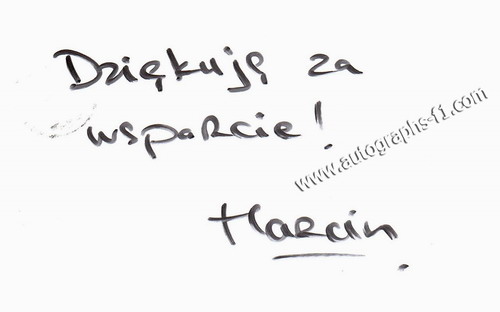 Dziękuję za
wsparcie!
www.autographs-f1.com
Marcin